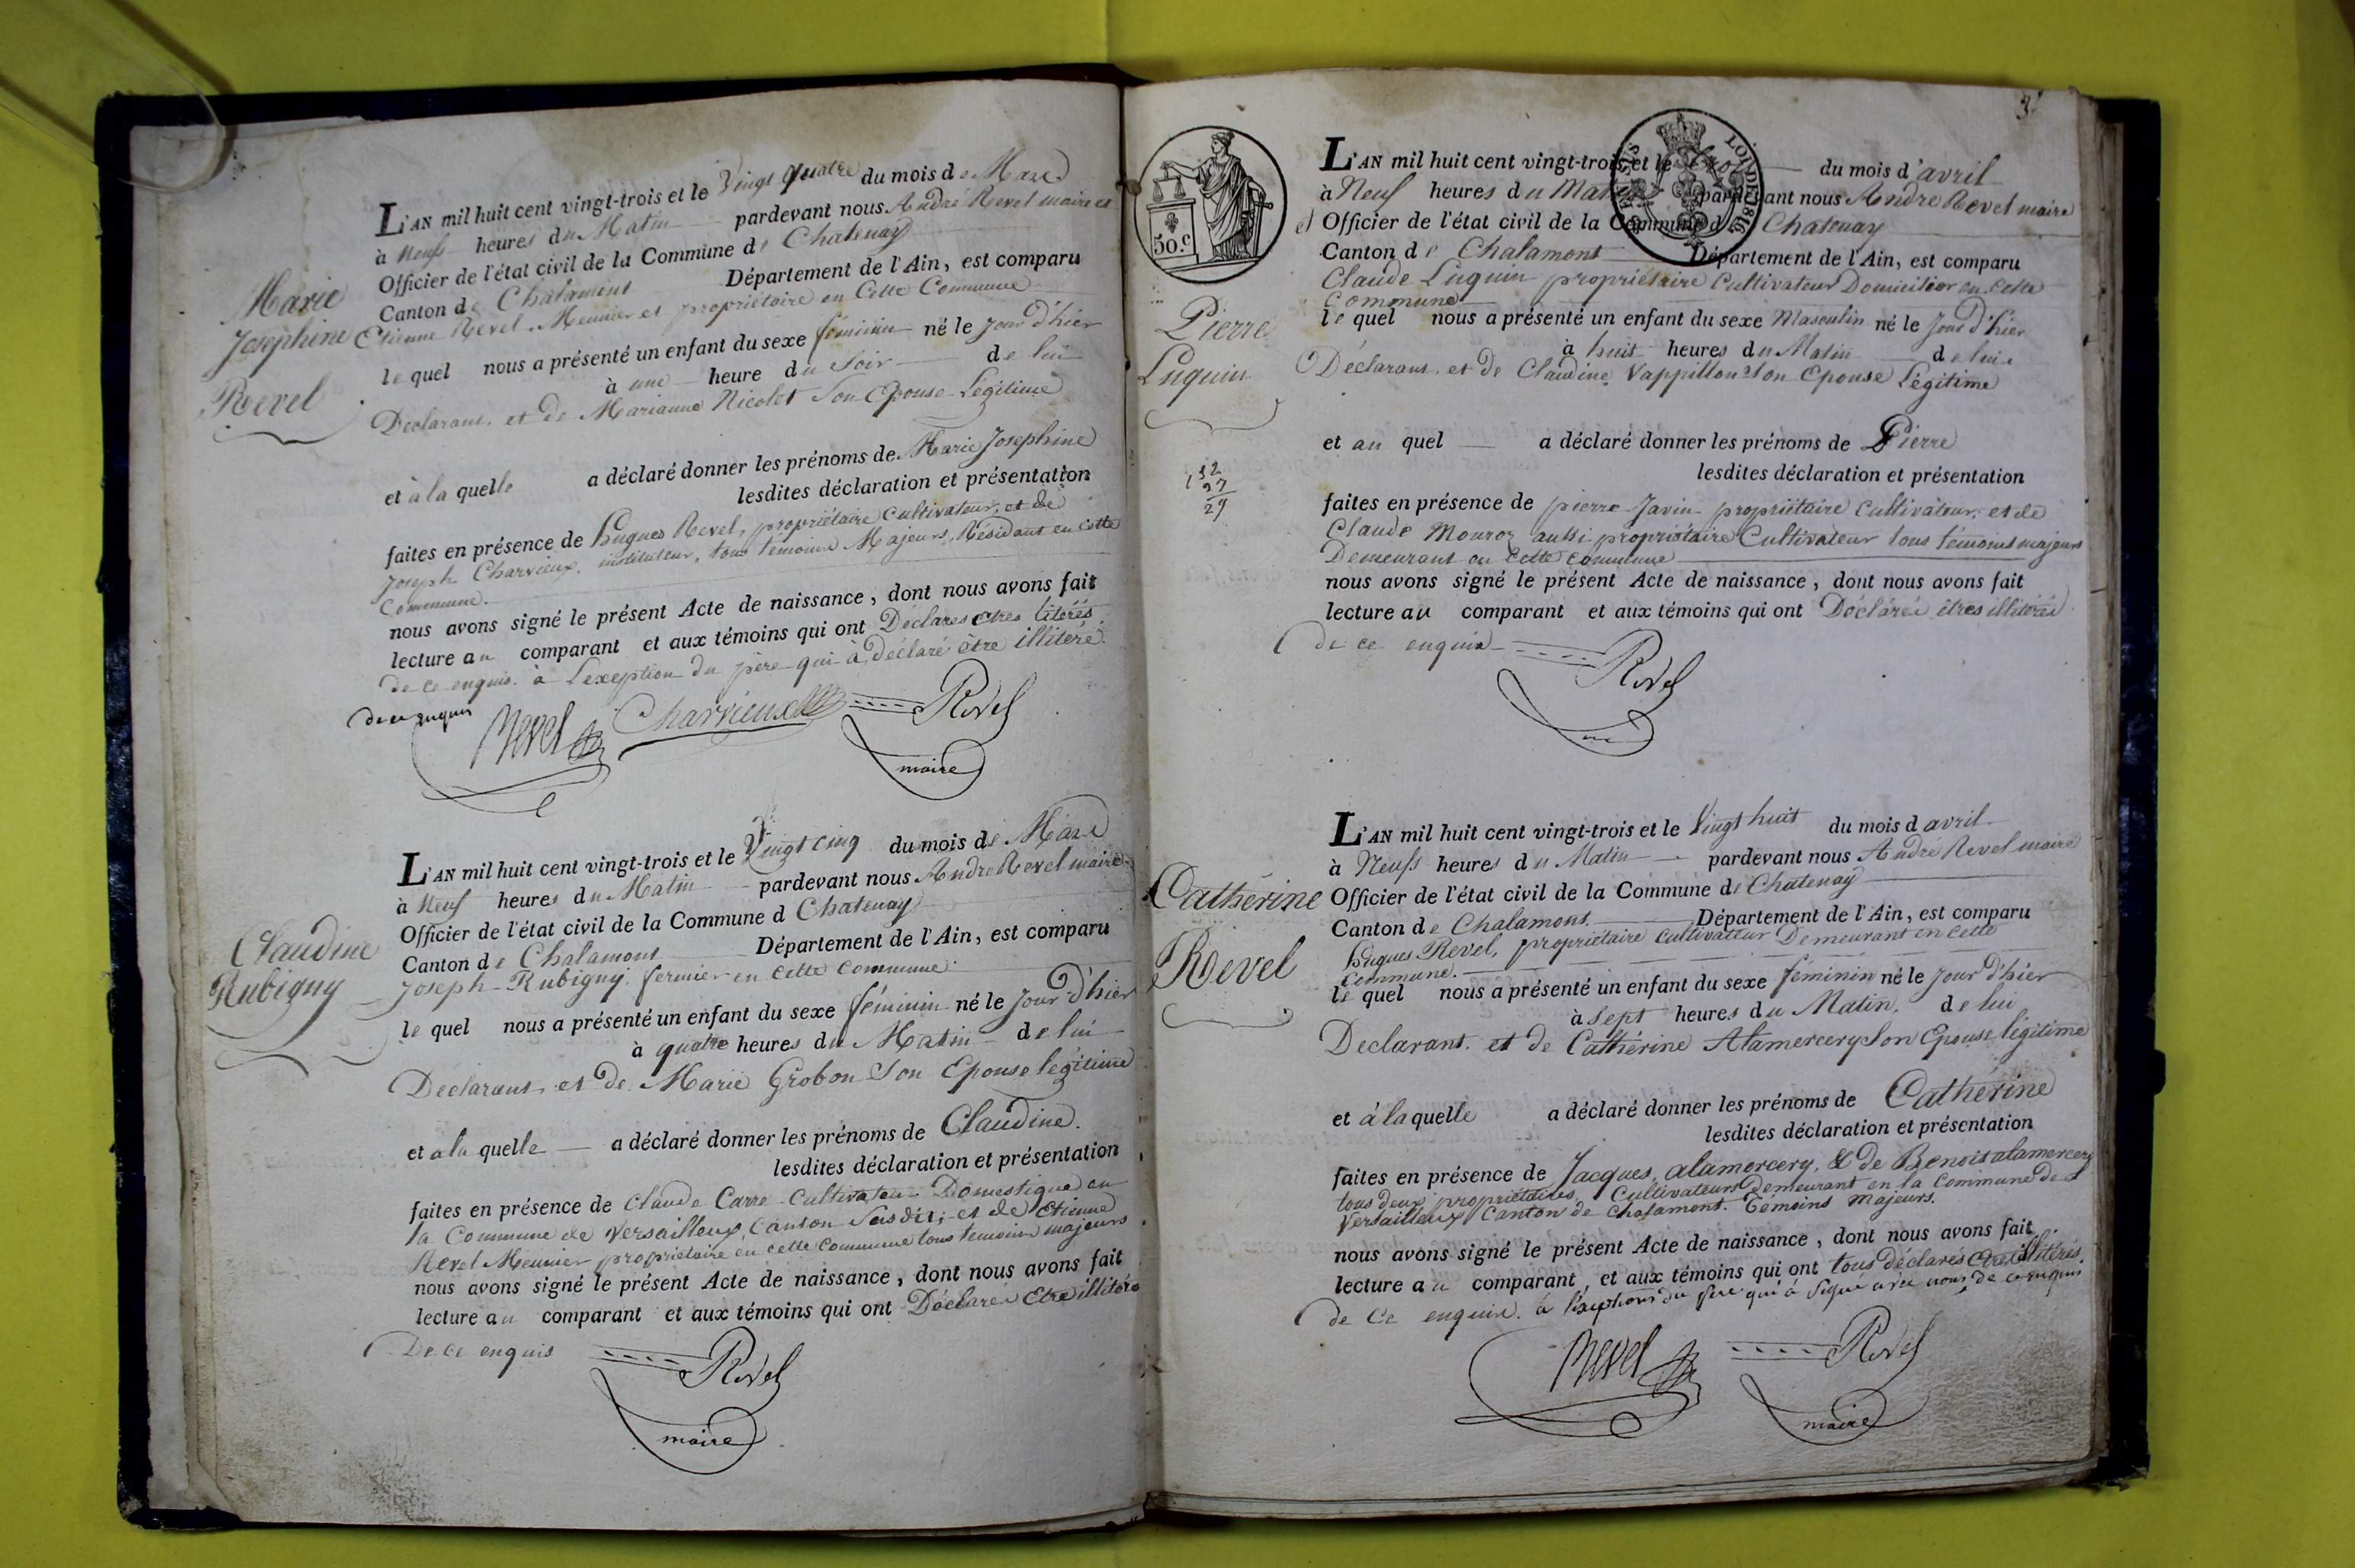 Marie
Josephine
Revel
L'AN mil huit cent vingt-trois et le Vingt quatre du mois de Mars
à Neuf heures du Matin pardevant nous André Revel maire et
Officier de l'état civil de la Commune de Chatenay
Canton de Chalamont Département de l'Ain, est comparu
Etienne Revel Meunier et propriétaire en Cette Commune
le quel nous a présenté un enfant du sexe féminin né le Jour d'hier
à une heure du Soir de lui
Declarant, et de Marianne Nicolet Son Epouse Légitime
et à la quelle a déclaré donner les prénoms de Marie Josephine
lesdites déclaration et présentation
faites en présence de Hugues Revel, propriétaire Cultivateur, et de
Joseph Charvieux, instituteur, tous témoins Majeurs, Résidant en Cette
Commune.
nous avons signé le présent Acte de naissance, dont nous avons fait
lecture au comparant et aux témoins qui ont Déclarés etres litérés
de ce enquis. à L'exeption du père qui à déclaré être illiteré.
de ce enquis
Revel Charvieux Revel
maire
Claudine
Rubigny
L'AN mil huit cent vingt-trois et le Vingt cinq du mois de Mars
à Neuf heures du Matin pardevant nous André Revel maire
Officier de l'état civil de la Commune d Chatenay
Canton de Chalamont Département de l'Ain, est comparu
Joseph Rubigny fermier en cette commune.
le quel nous a présenté un enfant du sexe féminin né le Jour d'hier
à quatre heures du Matin de lui
Déclarant, et de Marie Grobon Son Epouse legitime
et a la quelle a déclaré donner les prénoms de Claudine.
lesdites déclaration et présentation
faites en présence de Claude Carre Cultivateur Domestique en
la Commune de Versailleux, Canton Susdit, et de Etienne
Revel Meunier propriétaire en cette Commune tous temoins majeurs
nous avons signé le présent Acte de naissance, dont nous avons fait
lecture au comparant et aux témoins qui ont Déclarés Etre illitéré
De ce enquis
Revel
maire
3
50.c
LOI DE 1816
Pierre
Luquin
L'AN mil huit cent vingt-trois et le trois du mois d'avril
à Neuf heures du Matin pardevant nous André Revel maire
et Officier de l'état civil de la Commune d Chatenay
Canton de Chalamont Département de l'Ain, est comparu
Claude Luquin propriétaire Cultivateur Domicilier en Cette
Commune
le quel nous a présenté un enfant du sexe Masculin né le Jour d'hier
à huit heures du Matin de lui
Déclarant, et de Claudine Vappillon Son Epouse Légitime
et au quel a déclaré donner les prénoms de Pierre
lesdites déclaration et présentation
27
29
faites en présence de pierre Javin propriétaire Cultivateur, et de
Claude Mouroz aussi propriétaire Cultivateur tous témoins majeurs
Demeurant en Cette Commune
nous avons signé le présent Acte de naissance, dont nous avons fait
lecture au comparant et aux témoins qui ont Déclarés êtres illitérés
de ce enquis
Revel
Catherine
Revel
L'AN mil huit cent vingt-trois et le Vingt huit du mois d avril
à Neufs heures du Matin pardevant nous André Revel maire
Officier de l'état civil de la Commune de Chatenay
Canton de Chalamont Département de l'Ain, est comparu
Hugues Revel, propriétaire cultivateur Demeurant en Cette
Commune.
le quel nous a présenté un enfant du sexe féminin né le Jour d'hier
à Sept heures du Matin, de lui
Declarant. et de Cathérine Alamercery Son Epouse légitime
et à la quelle a déclaré donner les prénoms de Catherine
lesdites déclaration et présentation
faites en présence de Jacques, alamercery, & de Benoit alamercery
tous deux propriétaires, Cultivateurs Demeurant en la Commune de
Versailleux Canton de Chalamont. Témoins Majeurs.
nous avons signé le présent Acte de naissance, dont nous avons fait
lecture au comparant, et aux témoins qui ont tous déclarés etre illitérés
de Ce enquis. à l'exeptions du père qui à signé avec nous, de ce enquis
Revel Revel
maire